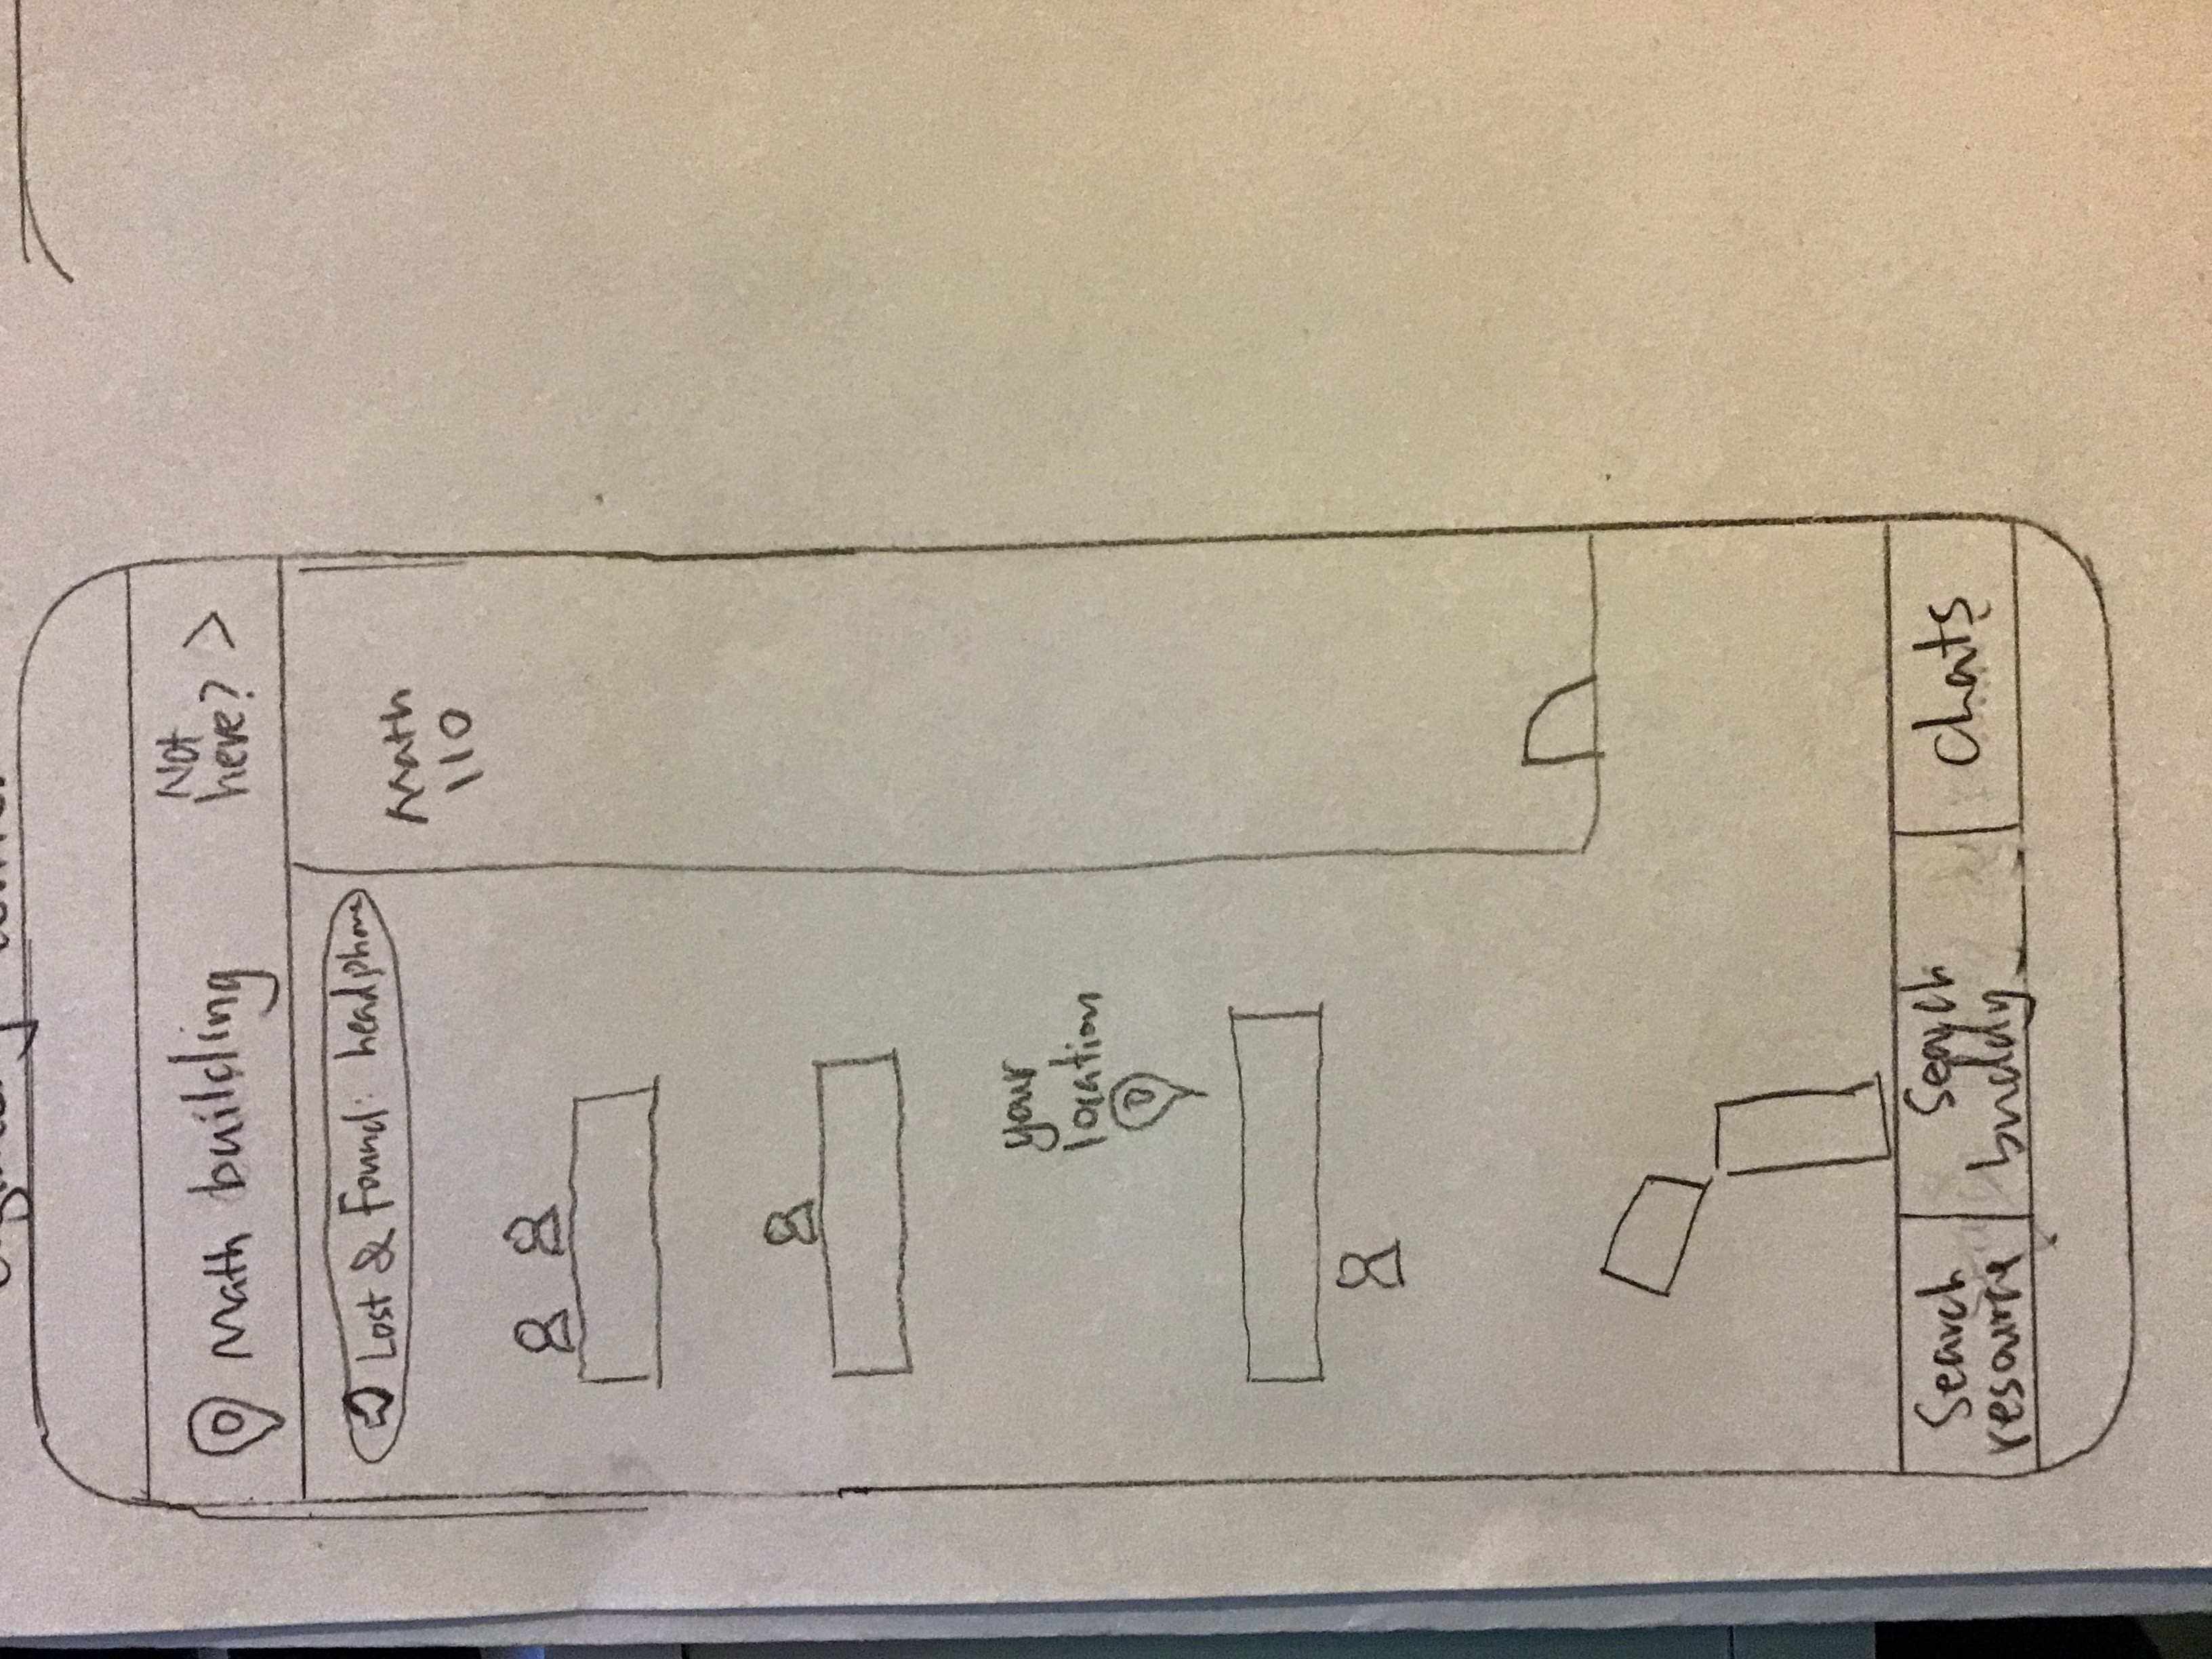 Math building
Not
here? >
Lost & Found: headphone
Math
110
your
location
Search
resource
Search
buddy
Chats